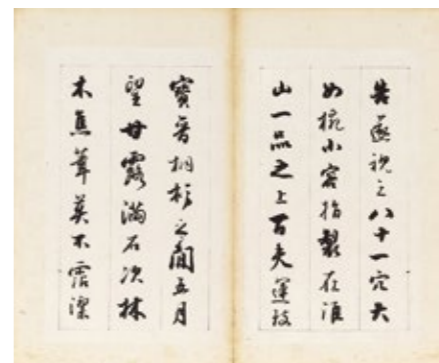 告遂視之八十一穴大
如椀小容指製在淮
山一品之上百夫運致
寶晉桐杉之間五月
望甘露滿石次林
木焦葦莫不霑潔